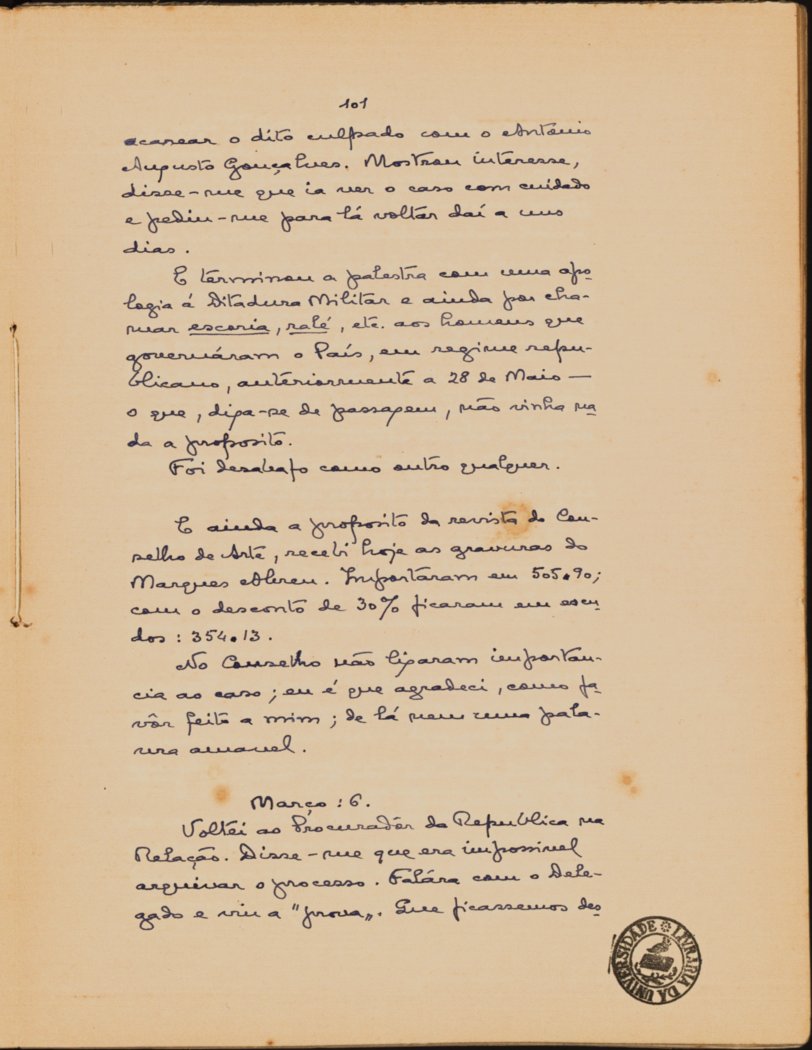 101
acarear o dito culpado com o António
Augusto Gonçalves. Mostrou interesse,
disse-me que ia ver o caso com cuidado
e pediu-me para lá voltar daí a uns
dias.
E terminou a palestra com uma apo-
logia á Ditadura Militar e ainda por cha-
mar escoria, ralé, etc. aos homens que
governáram o País, em regime repu-
blicano, anteriormente a 28 de Maio —
o que, diga-se de passagem, não vinha na-
da a proposito.
Foi desabafo como outro qualquer.
E ainda a proposito da revista do Con-
selho de Arte, recebi hoje as gravuras do
Marques Abreu. Importaram em 505.90;
com o desconto de 30% ficaram em escu-
dos: 354.13.
No Conselho não ligaram importan-
cia ao caso; eu é que agradeci, como fa-
vôr feito a mim; de lá nem uma pala-
vra amavel.
Março: 6.
Voltei ao Procuradôr da Republica na
Relação. Disse-me que era impossivel
arquivar o processo. Falára com o Dele-
gado e viu a "prova„. Que ficassemos des-
LIVRARIA DA UNIVERSIDADE